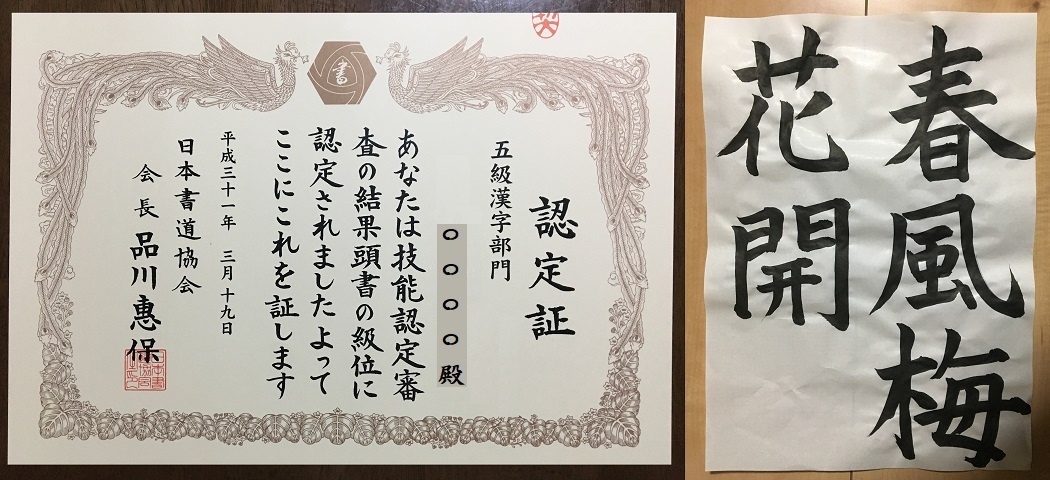 書
認定証
五級漢字部門
○○○○殿
あなたは技能認定審
査の結果頭書の級位に
認定されましたよって
ここにこれを証します
平成三十一年 三月十九日
日本書道協会
会長 品川惠保
春風梅
花開